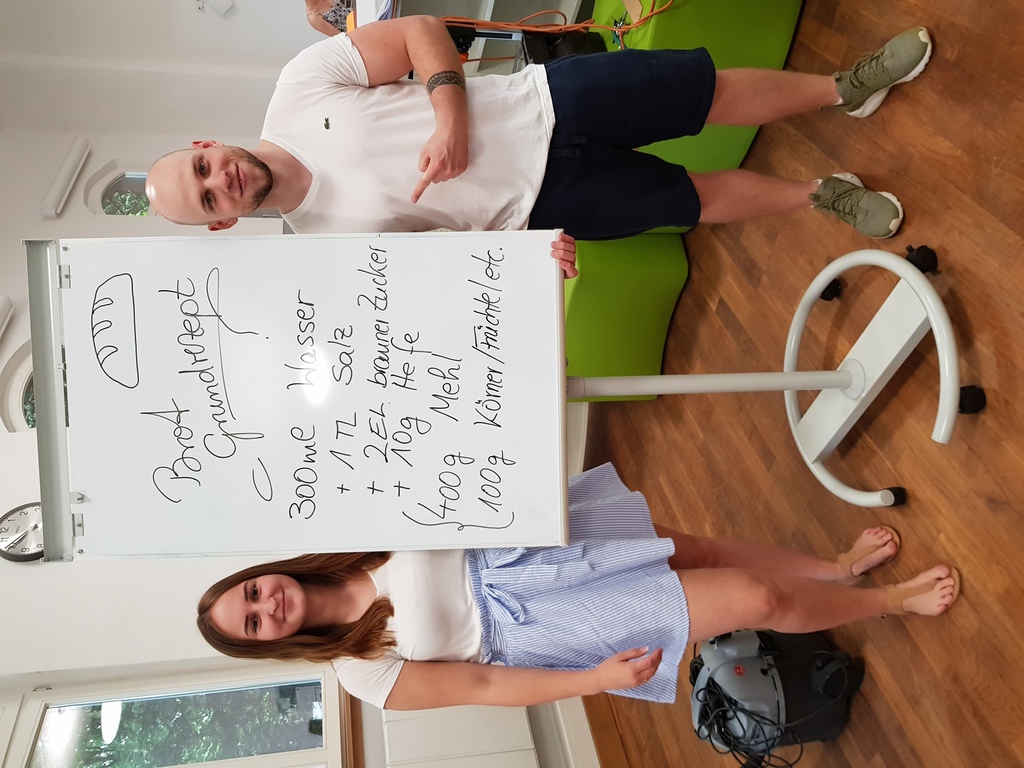 Brot
Grundrezept
300ml Wasser
+ 1 TL Salz
+ 2 EL. brauner Zucker
+ 10g Hefe
400g Mehl
100g Körner/Früchte/etc.